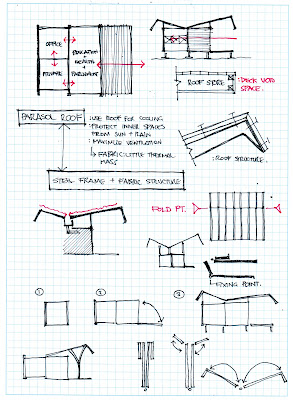 OFFICE
PRIVATE
EDUCATION
+
HEALTH
+
ROOF STORE
: DECK VOID
SPACE.
PARASOL ROOF
: USE ROOF FOR COOLING
· PROTECT INNER SPACES
FROM SUN + RAIN
· MAXIMIZE VENTILATION
↳ FABRIC: LITTLE THERMAL
MASS
ROOF STRUCTURE.
STEEL FRAME + FABRIC STRUCTURE
FOLD PT.
FIXING POINT.
1
2
3